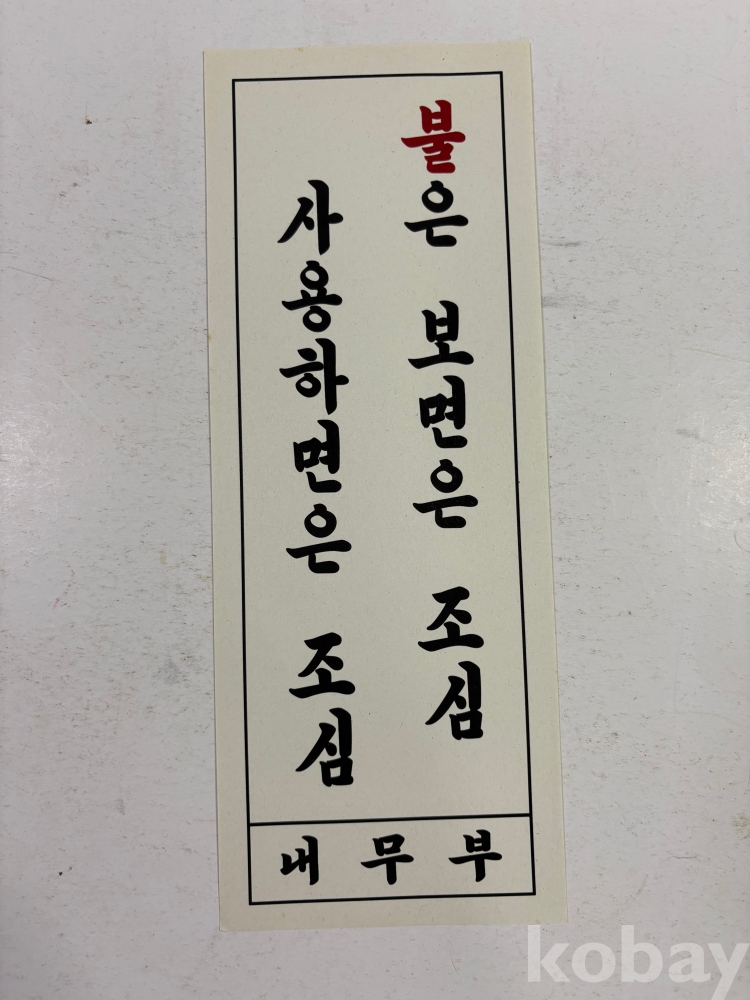 불은 보면은 조심
사용하면은 조심
내무부
kobay